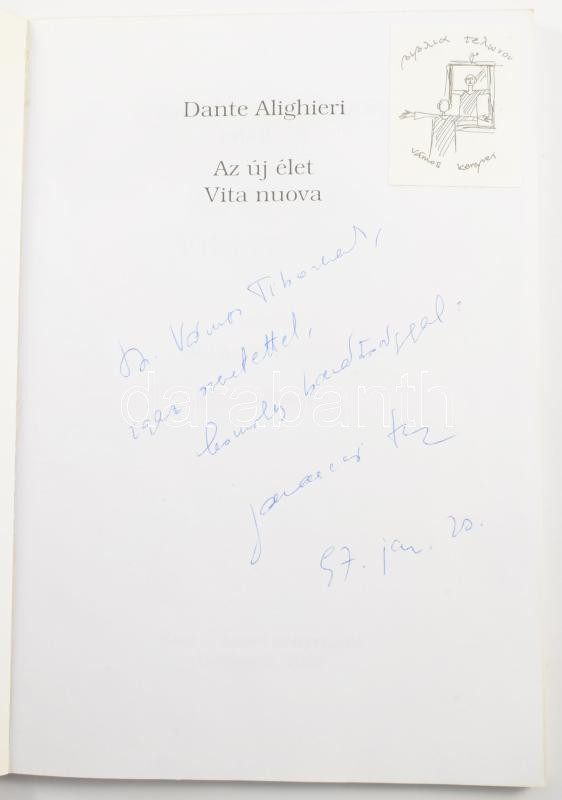 Dante Alighieri
Az új élet
Vita nuova
βιβλια τελωνου
Vámos könyvei
Dr. Vámos Tibornak,
igaz szeretettel,
komoly barátsággal:
97. jan. 20.
darabanth